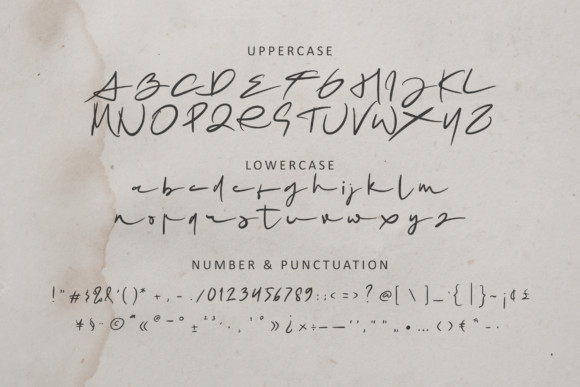 UPPERCASE
A B C D E F G H I J K L
M N O P Q R S T U V W X Y Z
LOWERCASE
a b c d e f g h i j k l m
n o p q r s t u v w x y z
NUMBER & PUNCTUATION
! " # $ % & ' ( ) * + , - . / 0 1 2 3 4 5 6 7 8 9 : ; < = > ? @ [ \ ] _ { | } ~ ¡ ¢ £
© « ® ± » ¿ × ÷ – — ' ' , " " „ • … ‹ › € ™